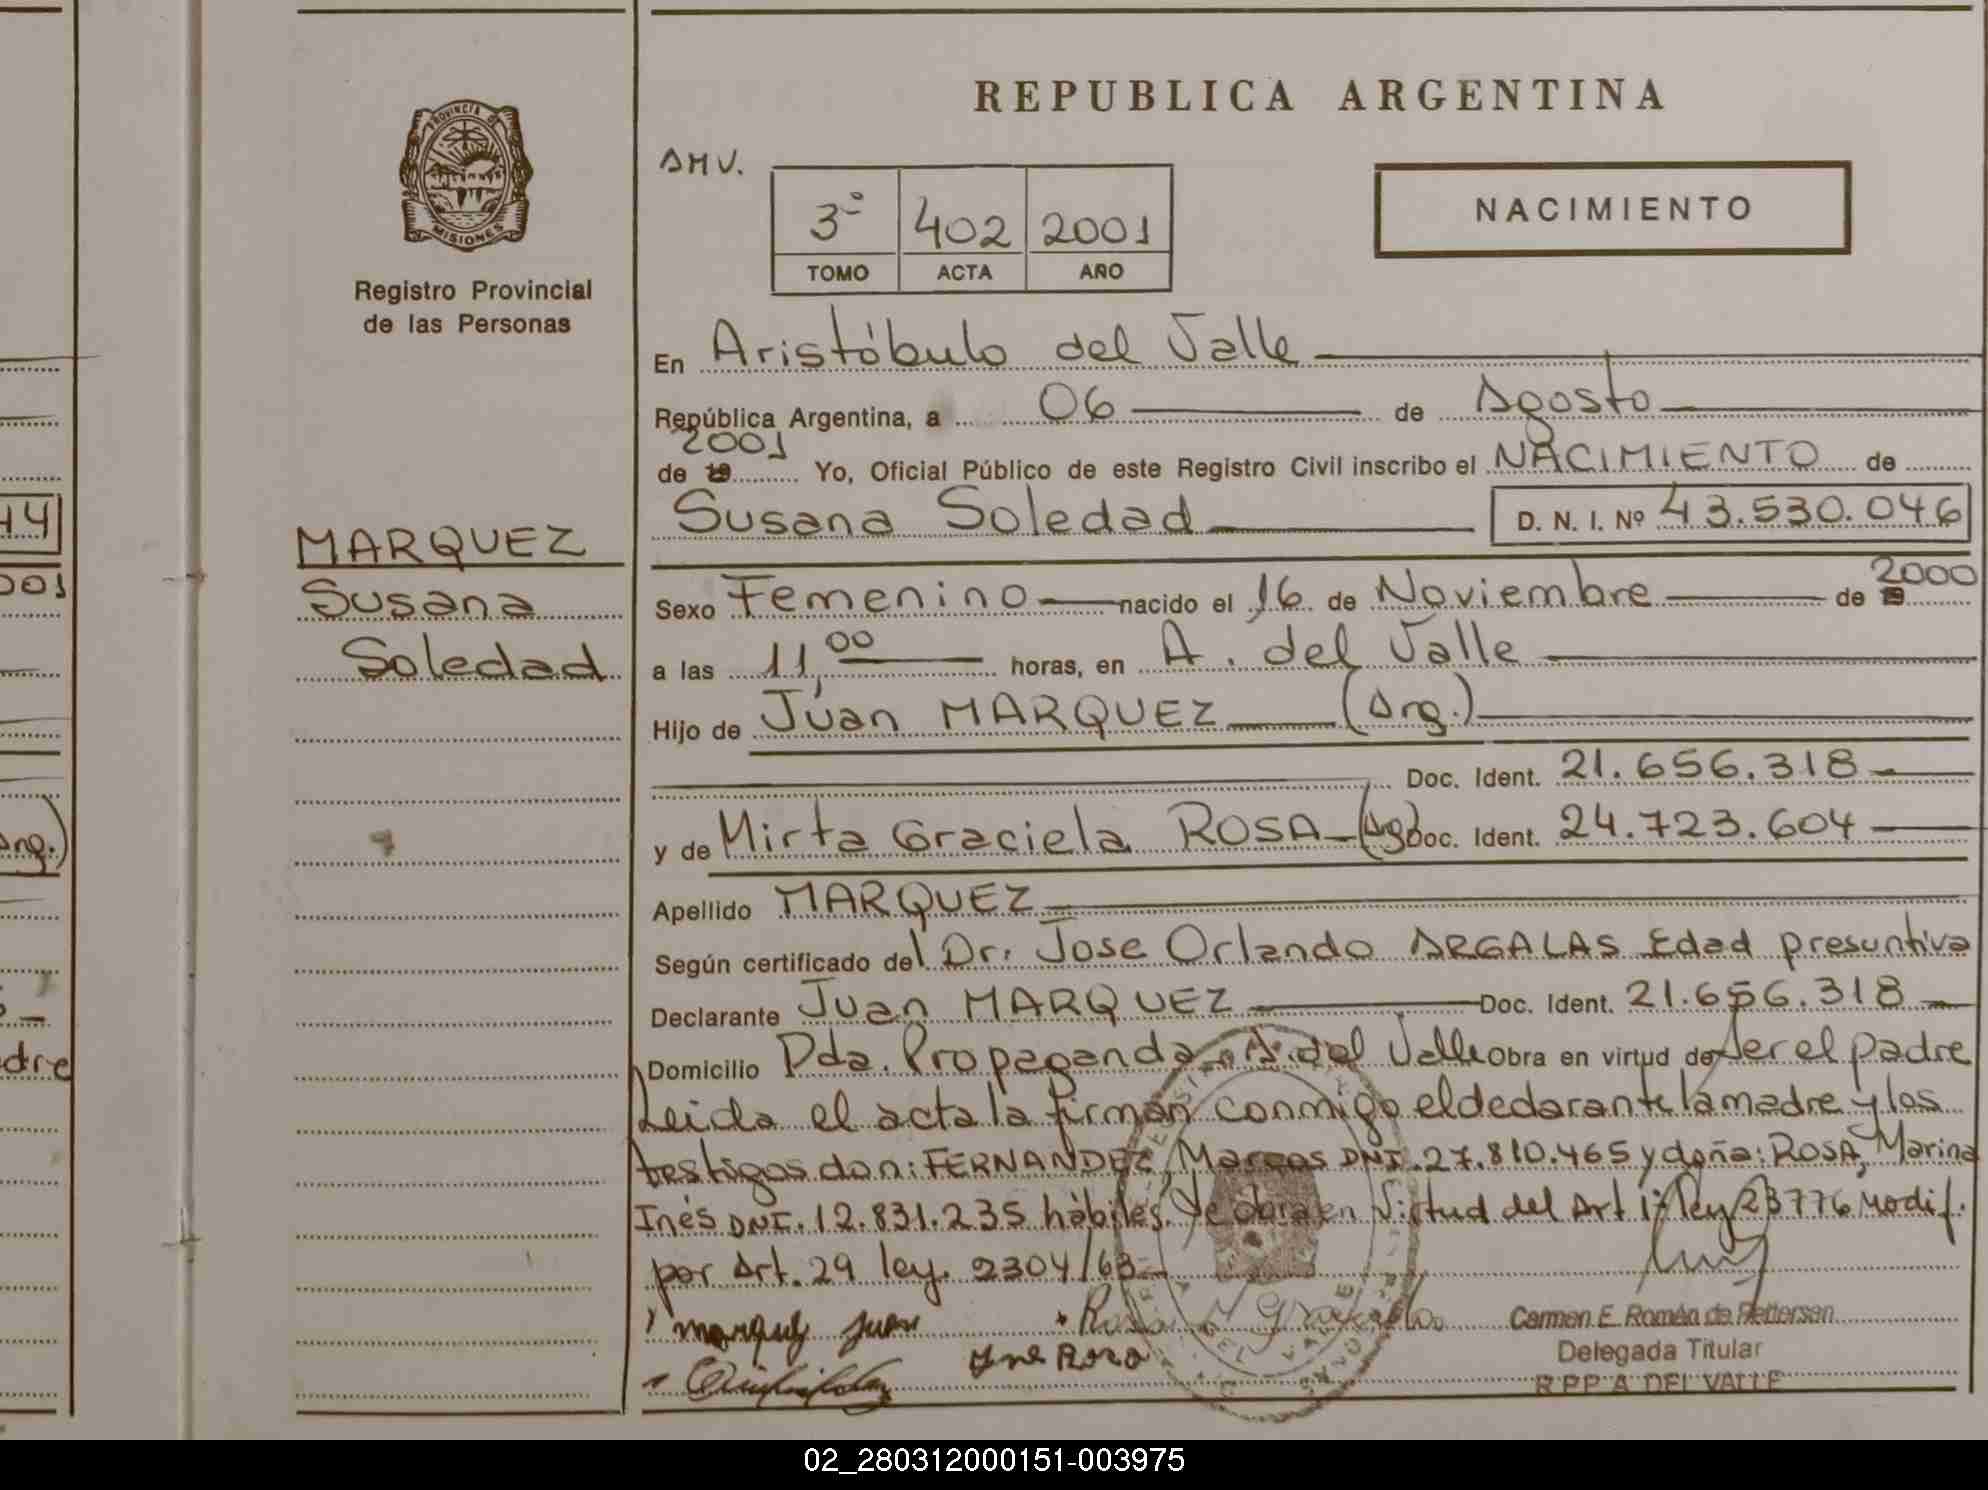 REPUBLICA ARGENTINA
PROVINCIA DE
MISIONES
Registro Provincial
de las Personas
AMV.
3º 402 2001
TOMO ACTA AÑO
NACIMIENTO
En Aristóbulo del Valle
República Argentina, a 06 de Agosto
2001
de 19 Yo, Oficial Público de este Registro Civil inscribo el NACIMIENTO de
Susana Soledad D. N. I. Nº 43.530.046
MARQUEZ
Susana
Soledad
Sexo Femenino nacido el 16 de Noviembre de 19 2000
a las 11,00 horas, en A. del Valle
Hijo de Juan MARQUEZ (Arg.)
Doc. Ident. 21.656.318
y de Mirta Graciela ROSA (Ag) Doc. Ident. 24.723.604
Apellido MARQUEZ
Según certificado del Dr. Jose Orlando ARGALAS Edad presuntiva
Declarante Juan MARQUEZ Doc. Ident. 21.656.318
Domicilio Pda. Propaganda A. del Valle Obra en virtud de Ser el padre
Leida el acta la firman conmigo el declarante la madre y los
testigos don: FERNANDEZ, Marcos DNI. 27.810.465 y doña: ROSA, Marina
Inés DNI. 12.831.235 hábiles. Se obra en Virtud del Art 1º ley 23776 Modif.
por Art. 29 ley. 2304/63
marquez juan Rosa M Graciela
Ine Rosa
Carmen E. Román de Pettersen
Delegada Titular
R.P.P. A. DEL VALLE
14
001
Arg.)
adre
02_280312000151-003975